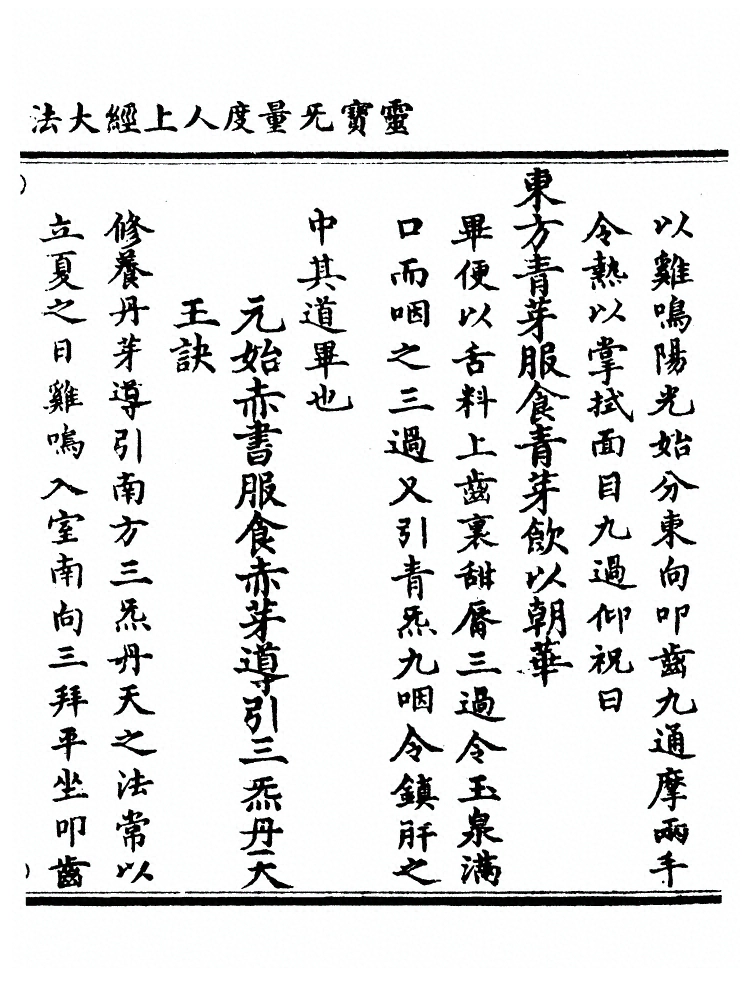 靈寶旡量度人上經大法
以雞鳴陽光始分東向叩齒九通摩兩手
令熱以掌拭面目九過仰祝曰
東方青芽服食青芽飲以朝華
畢便以舌料上齒裏甜脣三過令玉泉滿
口而咽之三過又引青炁九咽令鎮肝之
中其道畢也
元始赤書服食赤芽導引三炁丹天
王訣
修養丹芽導引南方三炁丹天之法常以
立夏之日雞鳴入室南向三拜平坐叩齒